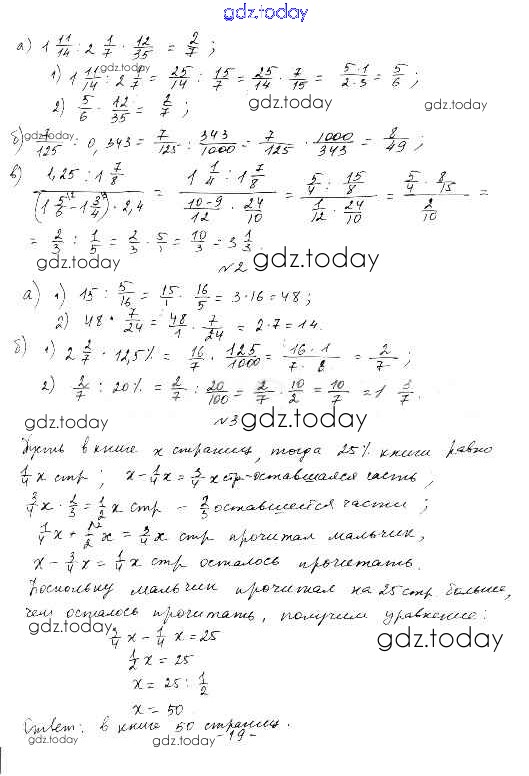 gdz.today
а) 1 11/14 : 2 1/7 · 12/35 = 2/7 ;
1) 1 11/14 : 2 1/7 = 25/14 : 15/7 = 25/14 · 7/15 = 5·1/2·3 = 5/6 ;
2) 5/6 · 12/35 = 2/7 ;
gdz.today gdz.today gdz.today
б) 7/125 : 0,343 = 7/125 : 343/1000 = 7/125 · 1000/343 = 8/49 ;
gdz.today
в) (1,25 : 1 7/8) / ((1 5/6 - 1 3/4) · 2,4) = (1 1/4 : 1 7/8) / ((10-9)/12 · 24/10) = (5/4 : 15/8) / (1/12 · 24/10) = (5/4 · 8/15) / (2/10) =
= 2/3 : 1/5 = 2/3 · 5/1 = 10/3 = 3 1/3.
gdz.today gdz.today
№2
а) 1) 15 : 5/16 = 15/1 · 16/5 = 3·16 = 48 ;
2) 48 · 7/24 = 48/1 · 7/24 = 2·7 = 14.
б) 1) 2 2/7 · 12,5% = 16/7 · 125/1000 = 16·1/7·8 = 2/7 ;
2) 2/7 : 20% = 2/7 : 20/100 = 2/7 · 10/2 = 10/7 = 1 3/7.
gdz.today gdz.today
№3
Пусть в книге x страниц, тогда 25% книги равно
1/4 x стр ; x - 1/4 x = 3/4 x стр - оставшаяся часть,
3/4 x · 2/3 = 1/2 x стр - 2/3 оставшейся части ;
1/4 x + 1/2 x = 3/4 x стр прочитал мальчик,
x - 3/4 x = 1/4 x стр осталось прочитать.
Поскольку мальчик прочитал на 25 стр больше,
чем осталось прочитать, получим уравнение:
gdz.today gdz.today
3/4 x - 1/4 x = 25
1/2 x = 25
x = 25 : 1/2
x = 50
Ответ: в книге 50 страниц.
gdz.today - 19 - gdz.today